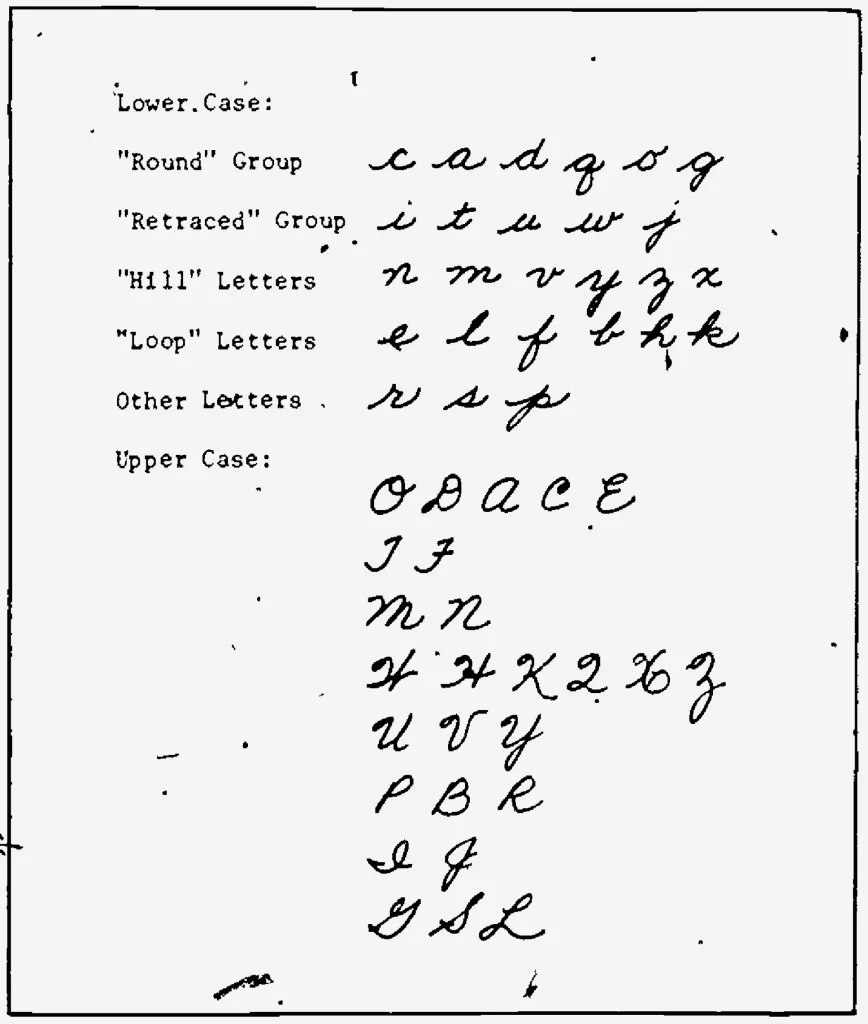 Lower Case:
"Round" Group c a d q o g
"Retraced" Group i t u w j
"Hill" Letters n m v y z x
"Loop" Letters e l f b h k
Other Letters r s p
Upper Case:
O D A C E
T F
M N
W H K Q X Z
U V Y
P B R
I J
G S L